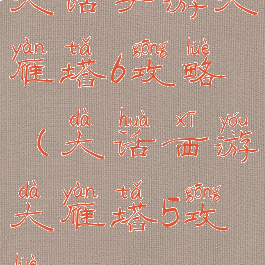 大话手游大
yàn tǎ gōng lüè
雁塔6攻略
dà huà xī yóu
（大话西游
dà yàn tǎ gōng
大雁塔5攻
lüè